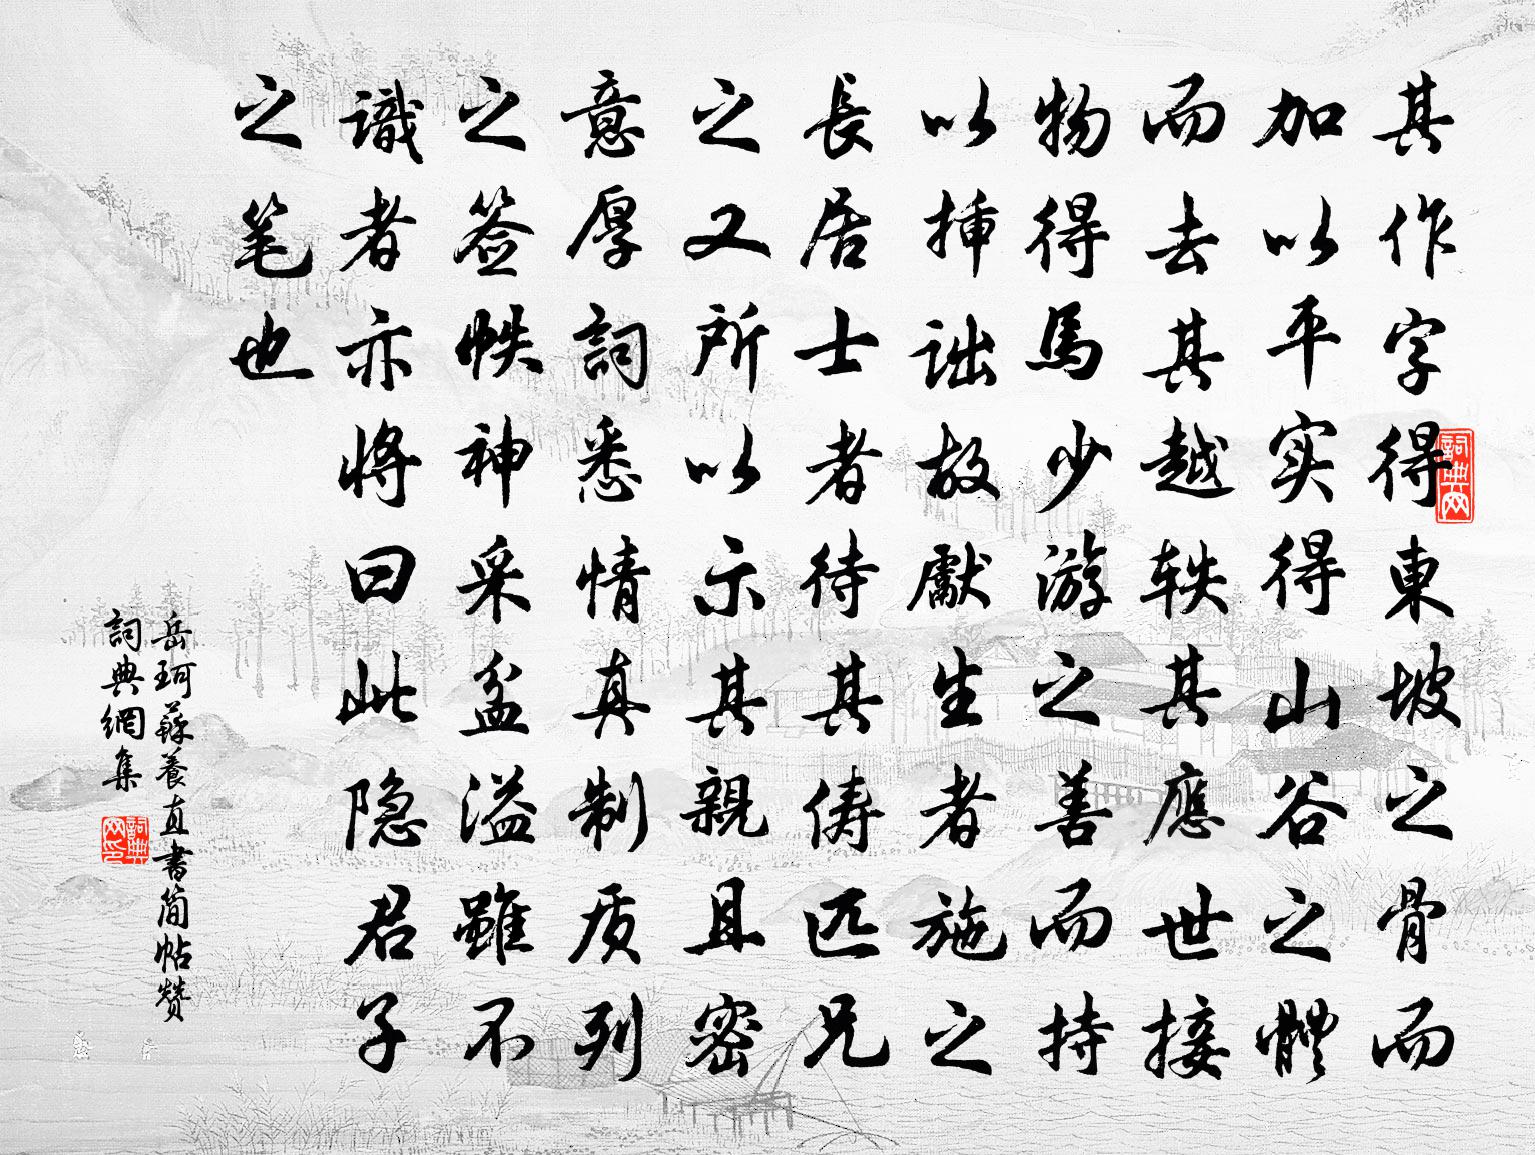 其作字得東坡之骨而
加以平实得山谷之體
而去其越轶其應世接
物得馬少游之善而持
以挿詘故獻生者施之
長居士者待其俦匹兄
之又所以示其親且密
意厚詞悉情真制质列
之签帙神采盆溢雖不
識者亦将曰此隐君子
之笔也
岳珂蘇養直書简帖赞
詞典網集
詞典网
詞典网印